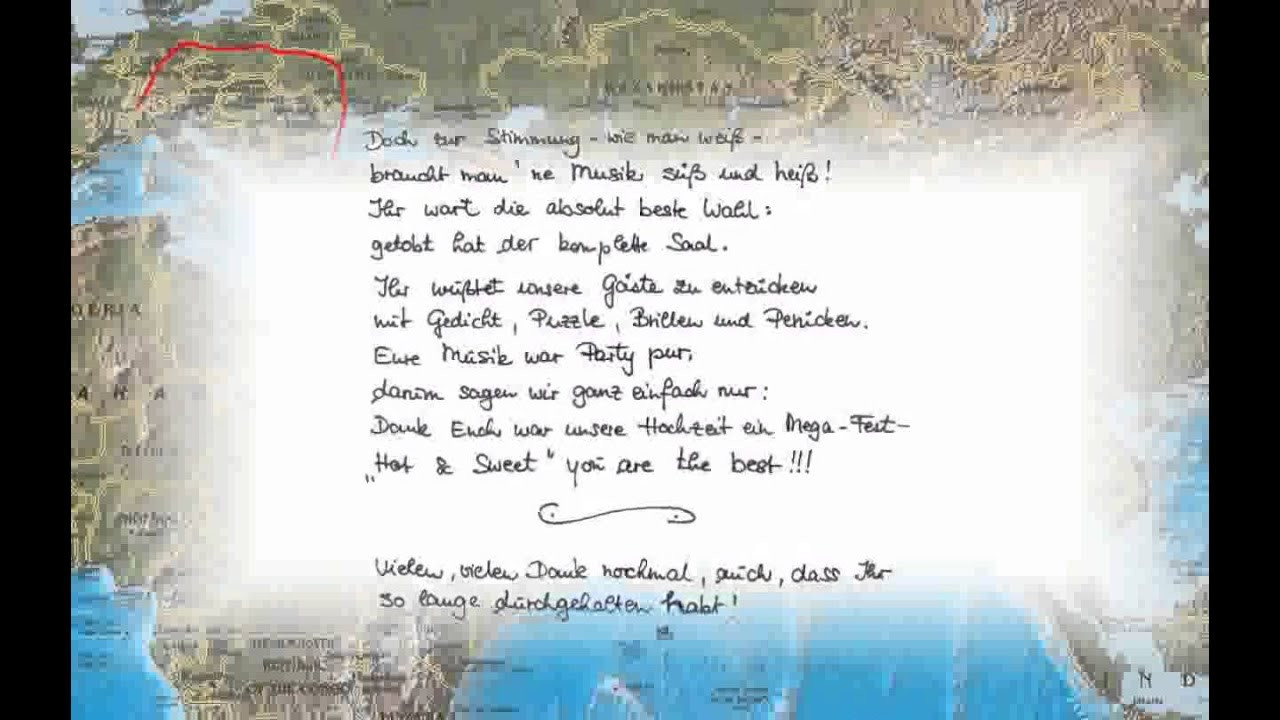 KAZAKHSTAN
Doch zur Stimmung - wie man weiß -
braucht man 'ne Musik süß und heiß!
Ihr wart die absolut beste Wahl:
getobt hat der komplette Saal.
Ihr wüßtet unsere Gäste zu entzücken
mit Gedicht, Puzzle, Brillen und Perücken.
Eure Musik war Party pur,
darum sagen wir ganz einfach nur:
Dank Euch war unsere Hochzeit ein Mega-Fest-
„Hot & Sweet" you are the best!!!
Vielen, vielen Dank nochmal, auch, dass Ihr
so lange durchgehalten habt!
OF THE CONGO
I N D